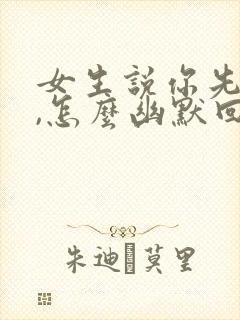 女生説你先
,怎麼幽默回
朱迪·莫里